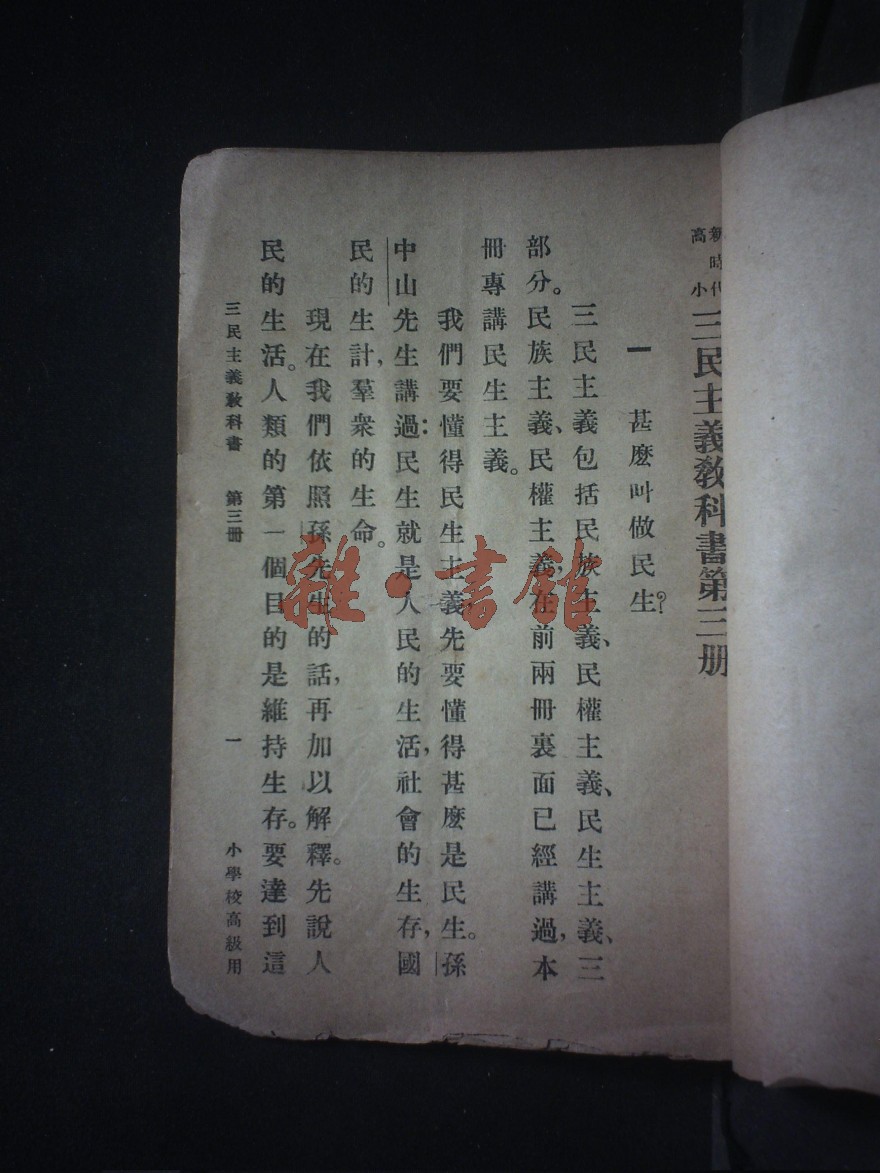 新時代
高小
三民主義教科書第三册
一 甚麽叫做民生?
三民主義包括民族主義、民權主義、民生主義、三
部分。民族主義、民權主義,在前兩冊裏面已經講過,本
冊專講民生主義。
我們要懂得民生主義,先要懂得甚麽是民生。孫
中山先生講過:民生就是人民的生活,社會的生存,國
民的生計,羣衆的生命。
現在我們依照孫先生的話,再加以解釋。先說人
民的生活。人類的第一個目的是維持生存。要達到這
三民主義教科書 第三冊 一 小學校高級用
雜·書館